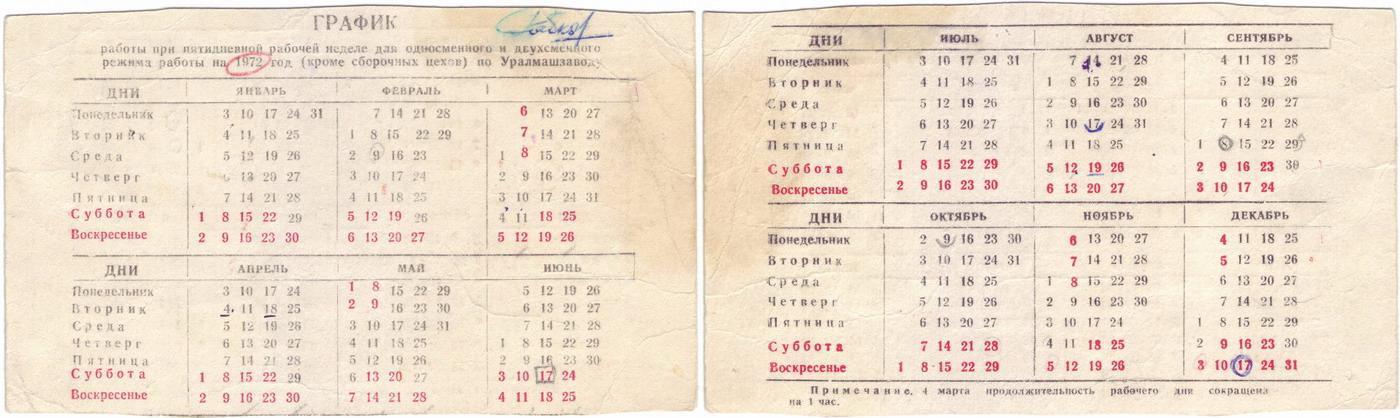 ГРАФИК
работы при пятидневной рабочей неделе для односменного и двухсменного
режима работы на 1972 год (кроме сборочных цехов) по Уралмашзаводу
ДНИ ЯНВАРЬ ФЕВРАЛЬ МАРТ
Понедельник 3 10 17 24 31 7 14 21 28 6 13 20 27
Вторник 4 11 18 25 1 8 15 22 29 7 14 21 28
Среда 5 12 19 26 2 9 16 23 1 8 15 22 29
Четверг 6 13 20 27 3 10 17 24 2 9 16 23 30
Пятница 7 14 21 28 4 11 18 25 3 10 17 24 31
Суббота 1 8 15 22 29 5 12 19 26 4 11 18 25
Воскресенье 2 9 16 23 30 6 13 20 27 5 12 19 26
ДНИ АПРЕЛЬ МАЙ ИЮНЬ
Понедельник 3 10 17 24 1 8 15 22 29 5 12 19 26
Вторник 4 11 18 25 2 9 16 23 30 6 13 20 27
Среда 5 12 19 26 3 10 17 24 31 7 14 21 28
Четверг 6 13 20 27 4 11 18 25 1 8 15 22 29
Пятница 7 14 21 28 5 12 19 26 2 9 16 23 30
Суббота 1 8 15 22 29 6 13 20 27 3 10 17 24
Воскресенье 2 9 16 23 30 7 14 21 28 4 11 18 25
ДНИ ИЮЛЬ АВГУСТ СЕНТЯБРЬ
Понедельник 3 10 17 24 31 7 14 21 28 4 11 18 25
Вторник 4 11 18 25 1 8 15 22 29 5 12 19 26
Среда 5 12 19 26 2 9 16 23 30 6 13 20 27
Четверг 6 13 20 27 3 10 17 24 31 7 14 21 28
Пятница 7 14 21 28 4 11 18 25 1 8 15 22 29
Суббота 1 8 15 22 29 5 12 19 26 2 9 16 23 30
Воскресенье 2 9 16 23 30 6 13 20 27 3 10 17 24
ДНИ ОКТЯБРЬ НОЯБРЬ ДЕКАБРЬ
Понедельник 2 9 16 23 30 6 13 20 27 4 11 18 25
Вторник 3 10 17 24 31 7 14 21 28 5 12 19 26
Среда 4 11 18 25 1 8 15 22 29 6 13 20 27
Четверг 5 12 19 26 2 9 16 23 30 7 14 21 28
Пятница 6 13 20 27 3 10 17 24 1 8 15 22 29
Суббота 7 14 21 28 4 11 18 25 2 9 16 23 30
Воскресенье 1 8 15 22 29 5 12 19 26 3 10 17 24 31
Примечание. 4 марта продолжительность рабочего дня сокращена
на 1 час.